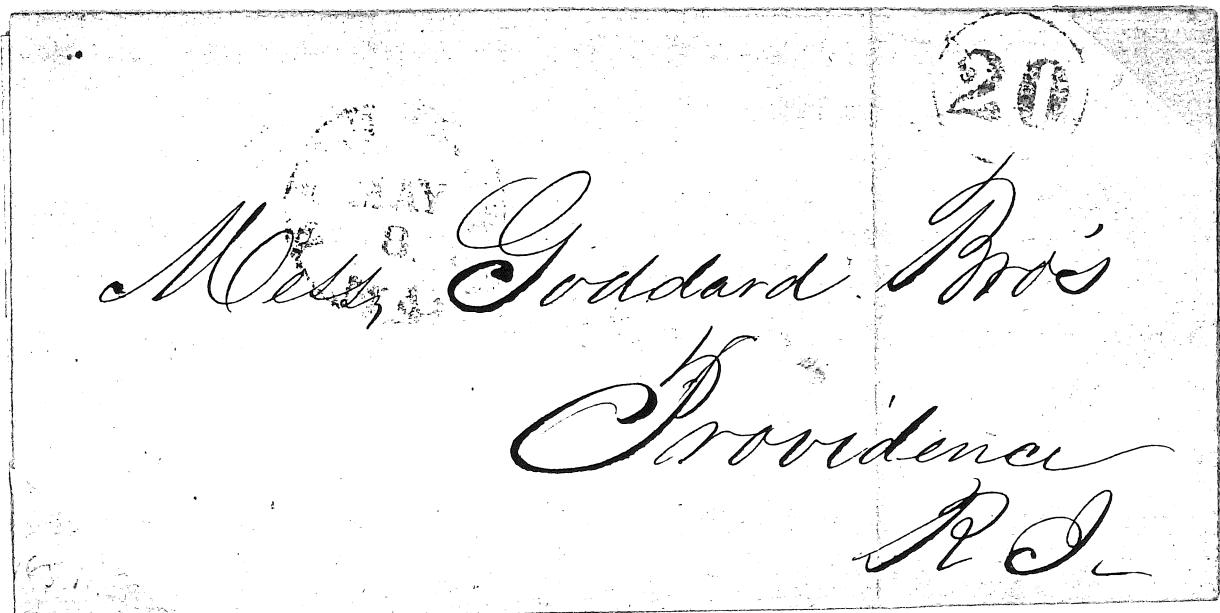 20
MAY
8
Mess, Goddard Bro's
Providence
R I